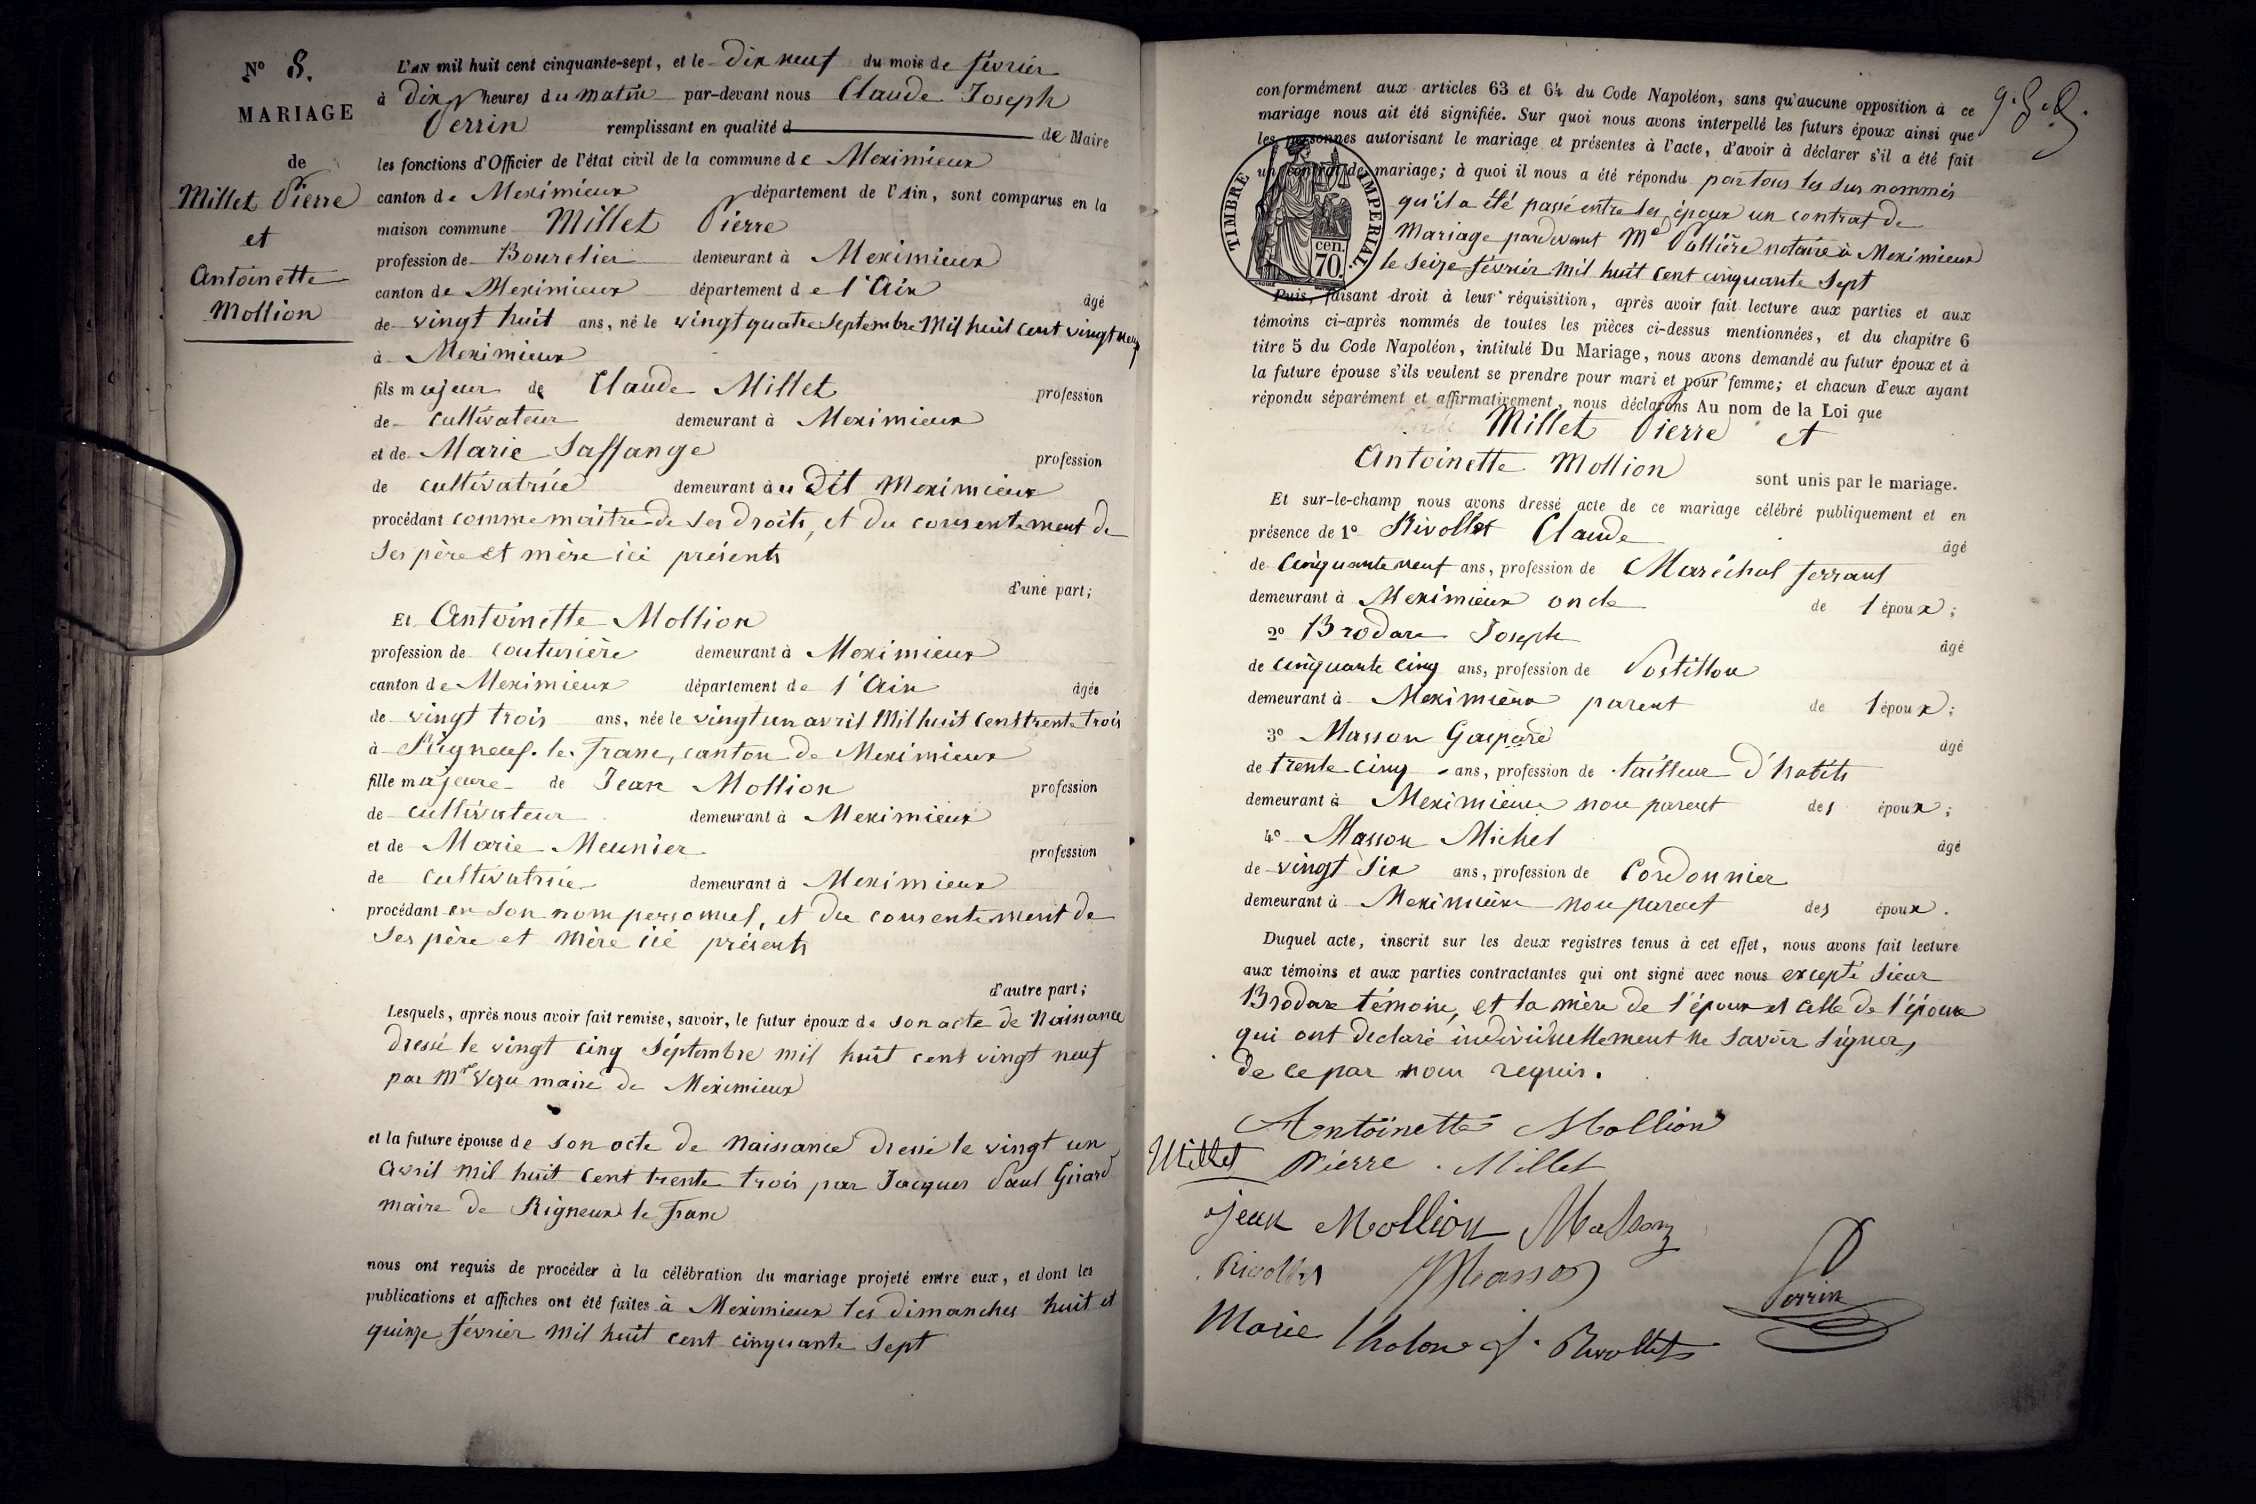 N° 8.
MARIAGE
de
Millet Pierre
et
Antoinette
Mollion
L'AN mil huit cent cinquante-sept, et le dix neuf du mois de février
à dix heures du matin par-devant nous Claude Joseph
Perrin remplissant en qualité d de Maire
les fonctions d'Officier de l'état civil de la commune de Meximieux
canton de Meximieux département de l'Ain, sont comparus en la
maison commune Millet Pierre
profession de Bourelier demeurant à Meximieux
canton de Meximieux département de l'Ain âgé
de vingt huit ans, né le vingt quatre Septembre Mil huit cent vingt neuf
à Meximieux
fils majeur de Claude Millet profession
de cultivateur demeurant à Meximieux
et de Marie Saffange profession
de cultivatrice demeurant à Dit Meximieux
procédant comme maitre de ses droits, et du consentement de
ses père et mère ici présents
d'une part;
Et Antoinette Mollion
profession de couturière demeurant à Meximieux
canton de Meximieux département de l'Ain âgée
de vingt trois ans, née le vingt un avril Mil huit cent trente trois
à Rigneux-le-Franc, canton de Meximieux
fille majeure de Jean Mollion profession
de cultivateur demeurant à Meximieux
et de Marie Meunier profession
de cultivatrice demeurant à Meximieux
procédant en son nom personnel, et du consentement de
ses père et mère ici présents
d'autre part;
Lesquels, après nous avoir fait remise, savoir, le futur époux de son acte de Naissance
dressé le vingt cinq Septembre mil huit cent vingt neuf
par Mr Vezu maire de Meximieux
et la future épouse de son acte de Naissance dressé le vingt un
avril mil huit cent trente trois par Jacques Paul Girard
maire de Rigneux le Franc
nous ont requis de procéder à la célébration du mariage projeté entre eux, et dont les
publications et affiches ont été faites à Meximieux les dimanches huit et
quinze février mil huit cent cinquante sept
conformément aux articles 63 et 64 du Code Napoléon, sans qu'aucune opposition à ce
mariage nous ait été signifiée. Sur quoi nous avons interpellé les futurs époux ainsi que
les personnes autorisant le mariage et présentes à l'acte, d'avoir à déclarer s'il a été fait
un contrat de mariage; à quoi il nous a été répondu par tous les sus nommés
qu'il a été passé entre les époux un contrat de
Mariage pardevant Me Vallière notaire à Meximieux
le seize février mil huit cent cinquante sept
TIMBRE IMPERIAL.
cen.
70.
Puis, faisant droit à leur réquisition, après avoir fait lecture aux parties et aux
témoins ci-après nommés de toutes les pièces ci-dessus mentionnées, et du chapitre 6
titre 5 du Code Napoléon, intitulé Du Mariage, nous avons demandé au futur époux et à
la future épouse s'ils veulent se prendre pour mari et pour femme; et chacun d'eux ayant
répondu séparément et affirmativement, nous déclarons Au nom de la Loi que
Millet Pierre et
Antoinette Mollion sont unis par le mariage.
Et sur-le-champ nous avons dressé acte de ce mariage célébré publiquement et en
présence de 1° Rivollet Claude âgé
de cinquante neuf ans, profession de Maréchal ferrant
demeurant à Meximieux oncle de l époux;
2° Brodare Joseph âgé
de cinquante cinq ans, profession de Postillon
demeurant à Meximieux parent de l époux;
3° Masson Gaspard âgé
de trente cinq ans, profession de tailleur d'habits
demeurant à Meximieux non parent des époux;
4° Masson Michel âgé
de vingt six ans, profession de Cordonnier
demeurant à Meximieux non parent des époux.
Duquel acte, inscrit sur les deux registres tenus à cet effet, nous avons fait lecture
aux témoins et aux parties contractantes qui ont signé avec nous excepté sieur
Brodare témoin, et la mère de l'époux et celle de l'épouse
qui ont déclaré individuellement ne savoir signer,
de ce par nous requis.
Antoinette Mollion
Millet Pierre . Millet
jean Mollion Masson
Rivollet Masson
Perrin
Marie Cholon J. Rivollet